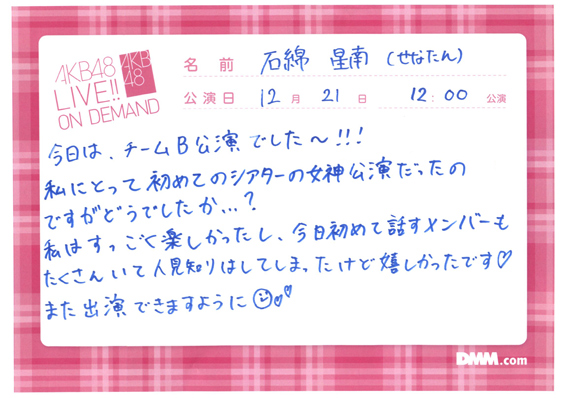 AKB48
LIVE!!
ON DEMAND
AKB
48
名前 石綿 星南 (せなたん)
公演日 12月 21日 12:00 公演
今日は、チームB公演でした〜!!!
私にとって初めてのシアターの女神公演だったの
ですがどうでしたか...?
私はすっごく楽しかったし、今日初めて話すメンバーも
たくさんいて人見知りはしてしまったけど嬉しかったです♡
また出演できますように☺♡♡
DMM.com